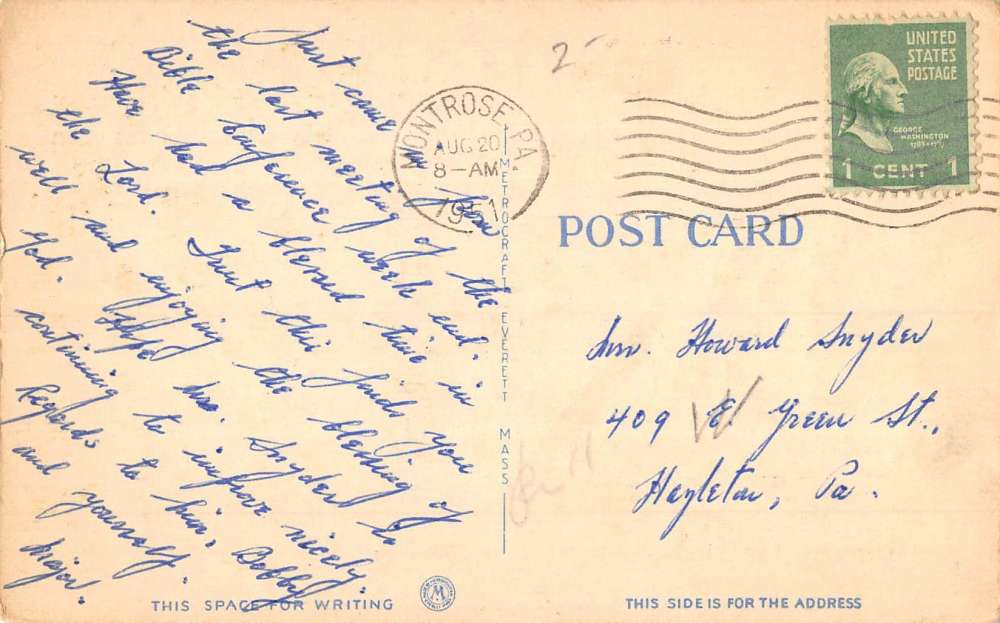 Just came in from
the last meeting of the
Bible Conference week end.
Have had a blessed time in
the Lord. Trust this finds you
well and enjoying the blessing of
God. Hope Mr. Snyder is
continuing to improve nicely.
Regards to him, Bobby
and yourself.
Major.
THIS SPACE FOR WRITING
M
METROCRAFT EVERETT MASS
2-
MONTROSE, PA.
AUG 20
8-AM
1951
UNITED
STATES
POSTAGE
GEORGE
WASHINGTON
1 CENT 1
POST CARD
Mrs. Howard Snyder
409 E. W Green St.,
Hazleton, Pa.
THIS SIDE IS FOR THE ADDRESS